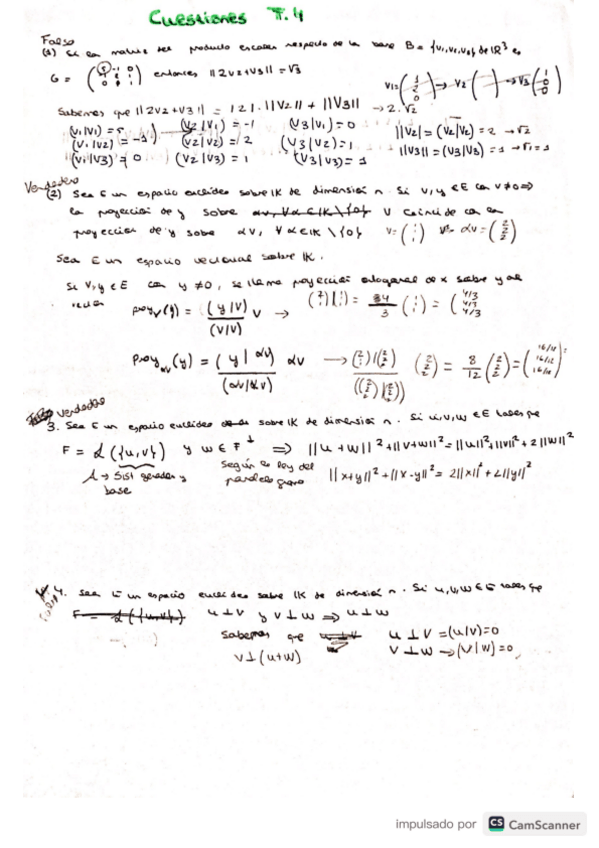 Cuestiones T.4
Falso
(1) Si la matriz del producto escalar respecto de la base B = {v1,v2,v3} de IR³ es
G = (5 -1 0 / -1 2 1 / 0 1 1) entonces ||2v2+v3|| = √3
Sabemos que ||2v2+v3|| = |2|.||v2|| + ||v3|| → 2.√2
(v1|v1) = 5 (v2|v1) = -1 (v3|v1) = 0 ||v2|| = (v2|v2) = 2 → √2
(v1|v2) = -1 (v2|v2) = 2 (v3|v2) = 1 ||v3|| = (v3|v3) = 1 → √1 = 1
(v1|v3) = 0 (v2|v3) = 1 (v3|v3) = 1
Verdadero
(2) Sea E un espacio euclídeo sobre IK de dimensión n. Si v, y ∈ E con v ≠ 0 ⇒
la proyección de y sobre αv, ∀α∈IK\{0} v coincide con la
proyección de y sobre αv, ∀α∈IK\{0} v = (1 1 1) αv = (2 2 2)
Sea E un espacio vectorial sobre IK.
Si v, y ∈ E con y ≠ 0, se llama proyección ortogonal de x sobre y al
vector
proy_v(y) = (y|v) / (v|v) v →
proy_αv(y) = (y|αv) / (αv|αv) αv → = 8/12 (2 2 2) = (16/12 16/12 16/12)
Verdadero
3. Sea E un espacio euclídeo sobre IK de dimensión n. Si u,v,w ∈ E tales que
F = L({u,v}) y w ∈ F⊥ ⇒ ||u+w||² + ||v+w||² = ||u||² + ||v||² + 2||w||²
L → Sist generador y
base
Según la ley del
paralelogramo ||x+y||² + ||x-y||² = 2||x||² + 2||y||²
4. Sea E un espacio euclídeo sobre IK de dimensión n. Si u,v,w ∈ E tales que
Falso
F = L({u,v}) u ⊥ v y v ⊥ w ⇒ u ⊥ w
Sabemos que u ⊥ v = (u|v) = 0
v ⊥ (u+w) v ⊥ w → (v|w) = 0
impulsado por CS CamScanner